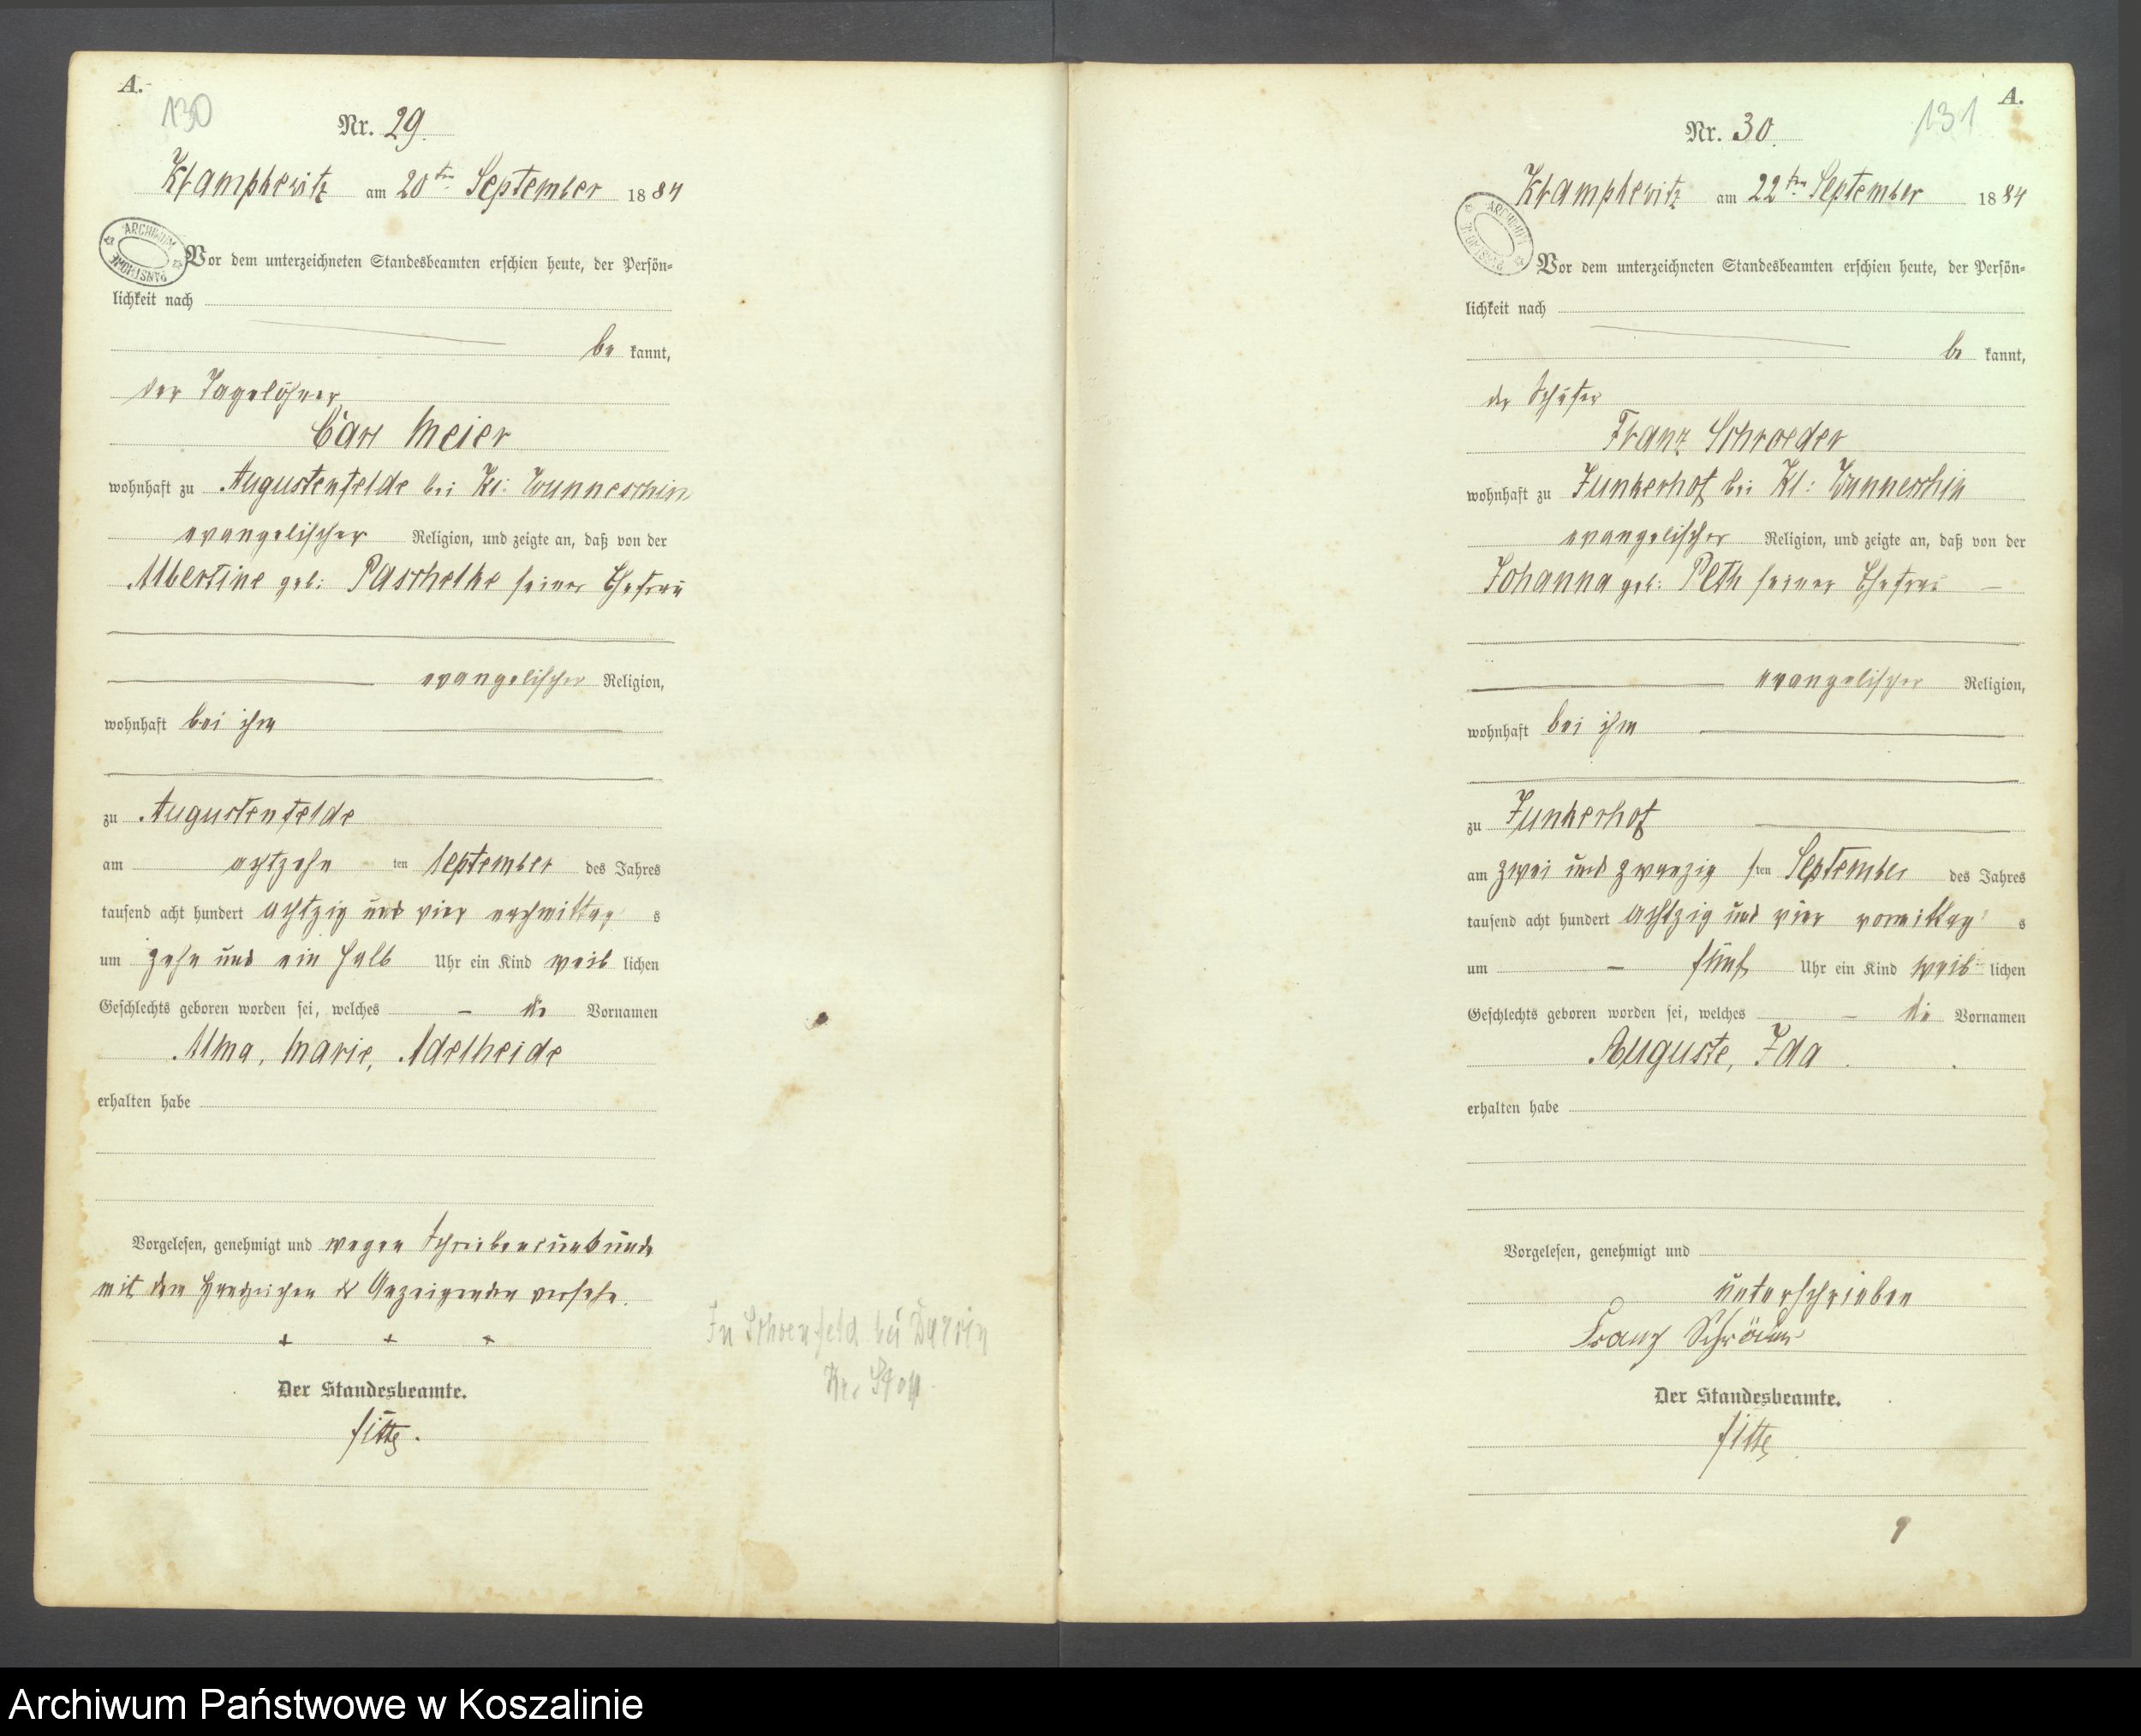 A.
130
Nr. 29.
Krampkewitz am 20ten September 1884
ARCHIWUM PAŃSTWOWE
Vor dem unterzeichneten Standesbeamten erschien heute, der Persön-
lichkeit nach
be kannt,
der Tagelöhner
Carl Meier
wohnhaft zu Augustenfelde bei Kl: Wunneschin
evangelischer Religion, und zeigte an, daß von der
Albertine geb: Paschelke seiner Ehefrau
evangelischer Religion,
wohnhaft bei ihm
zu Augustenfelde
am achtzehn ten September des Jahres
tausend acht hundert achtzig und vier nachmittag s
um zehn und ein halb Uhr ein Kind weib lichen
Geschlechts geboren worden sei, welches – die Vornamen
Alma, Marie, Adelheide
erhalten habe
Vorgelesen, genehmigt und wegen Schreibensunkunde
mit dem Handzeichen des Anzeigenden versehn.
+ + +
Der Standesbeamte.
In Schoenfeld bei
Kr. Stolp.
A.
131
Nr. 30.
Krampkewitz am 22ten September 1884
ARCHIWUM PAŃSTWOWE
Vor dem unterzeichneten Standesbeamten erschien heute, der Persön-
lichkeit nach
be kannt,
der Schäfer
Franz Schroeder
wohnhaft zu Junkerhof bei Kl: Wunneschin
evangelischer Religion, und zeigte an, daß von der
Johanna geb: Peth seiner Ehefrau –
evangelischer Religion,
wohnhaft bei ihm
zu Junkerhof
am zwei und zwanzig sten September des Jahres
tausend acht hundert achtzig und vier vormittag s
um – fünf Uhr ein Kind weib lichen
Geschlechts geboren worden sei, welches – die Vornamen
Auguste, Ida
erhalten habe
Vorgelesen, genehmigt und
unterschrieben
Franz Schröder
Der Standesbeamte.
9
Archiwum Państwowe w Koszalinie